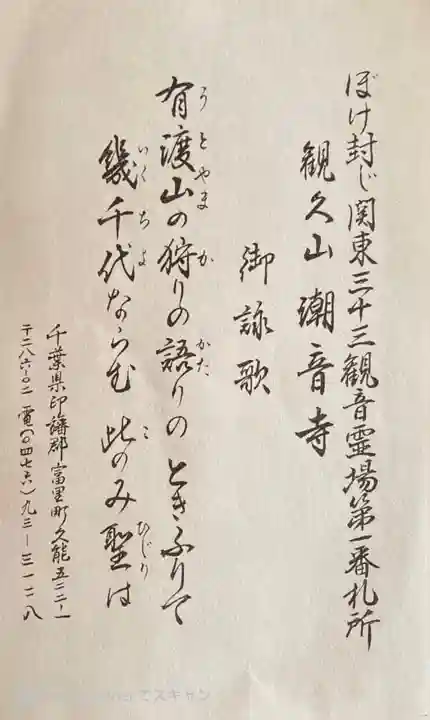 ぼけ封じ関東三十三観音霊場第一番札所
観久山 潮音寺
御詠歌
有渡山の狩りの語りの ときふりて
うとやま か かた
幾千代ならむ 此のみ聖は
いくちよ こ ひじり
千葉県印旛郡富里町久能五二二ー一
〒二八六ー〇二 電(〇四七六)九三ー三一二八
でスキャン